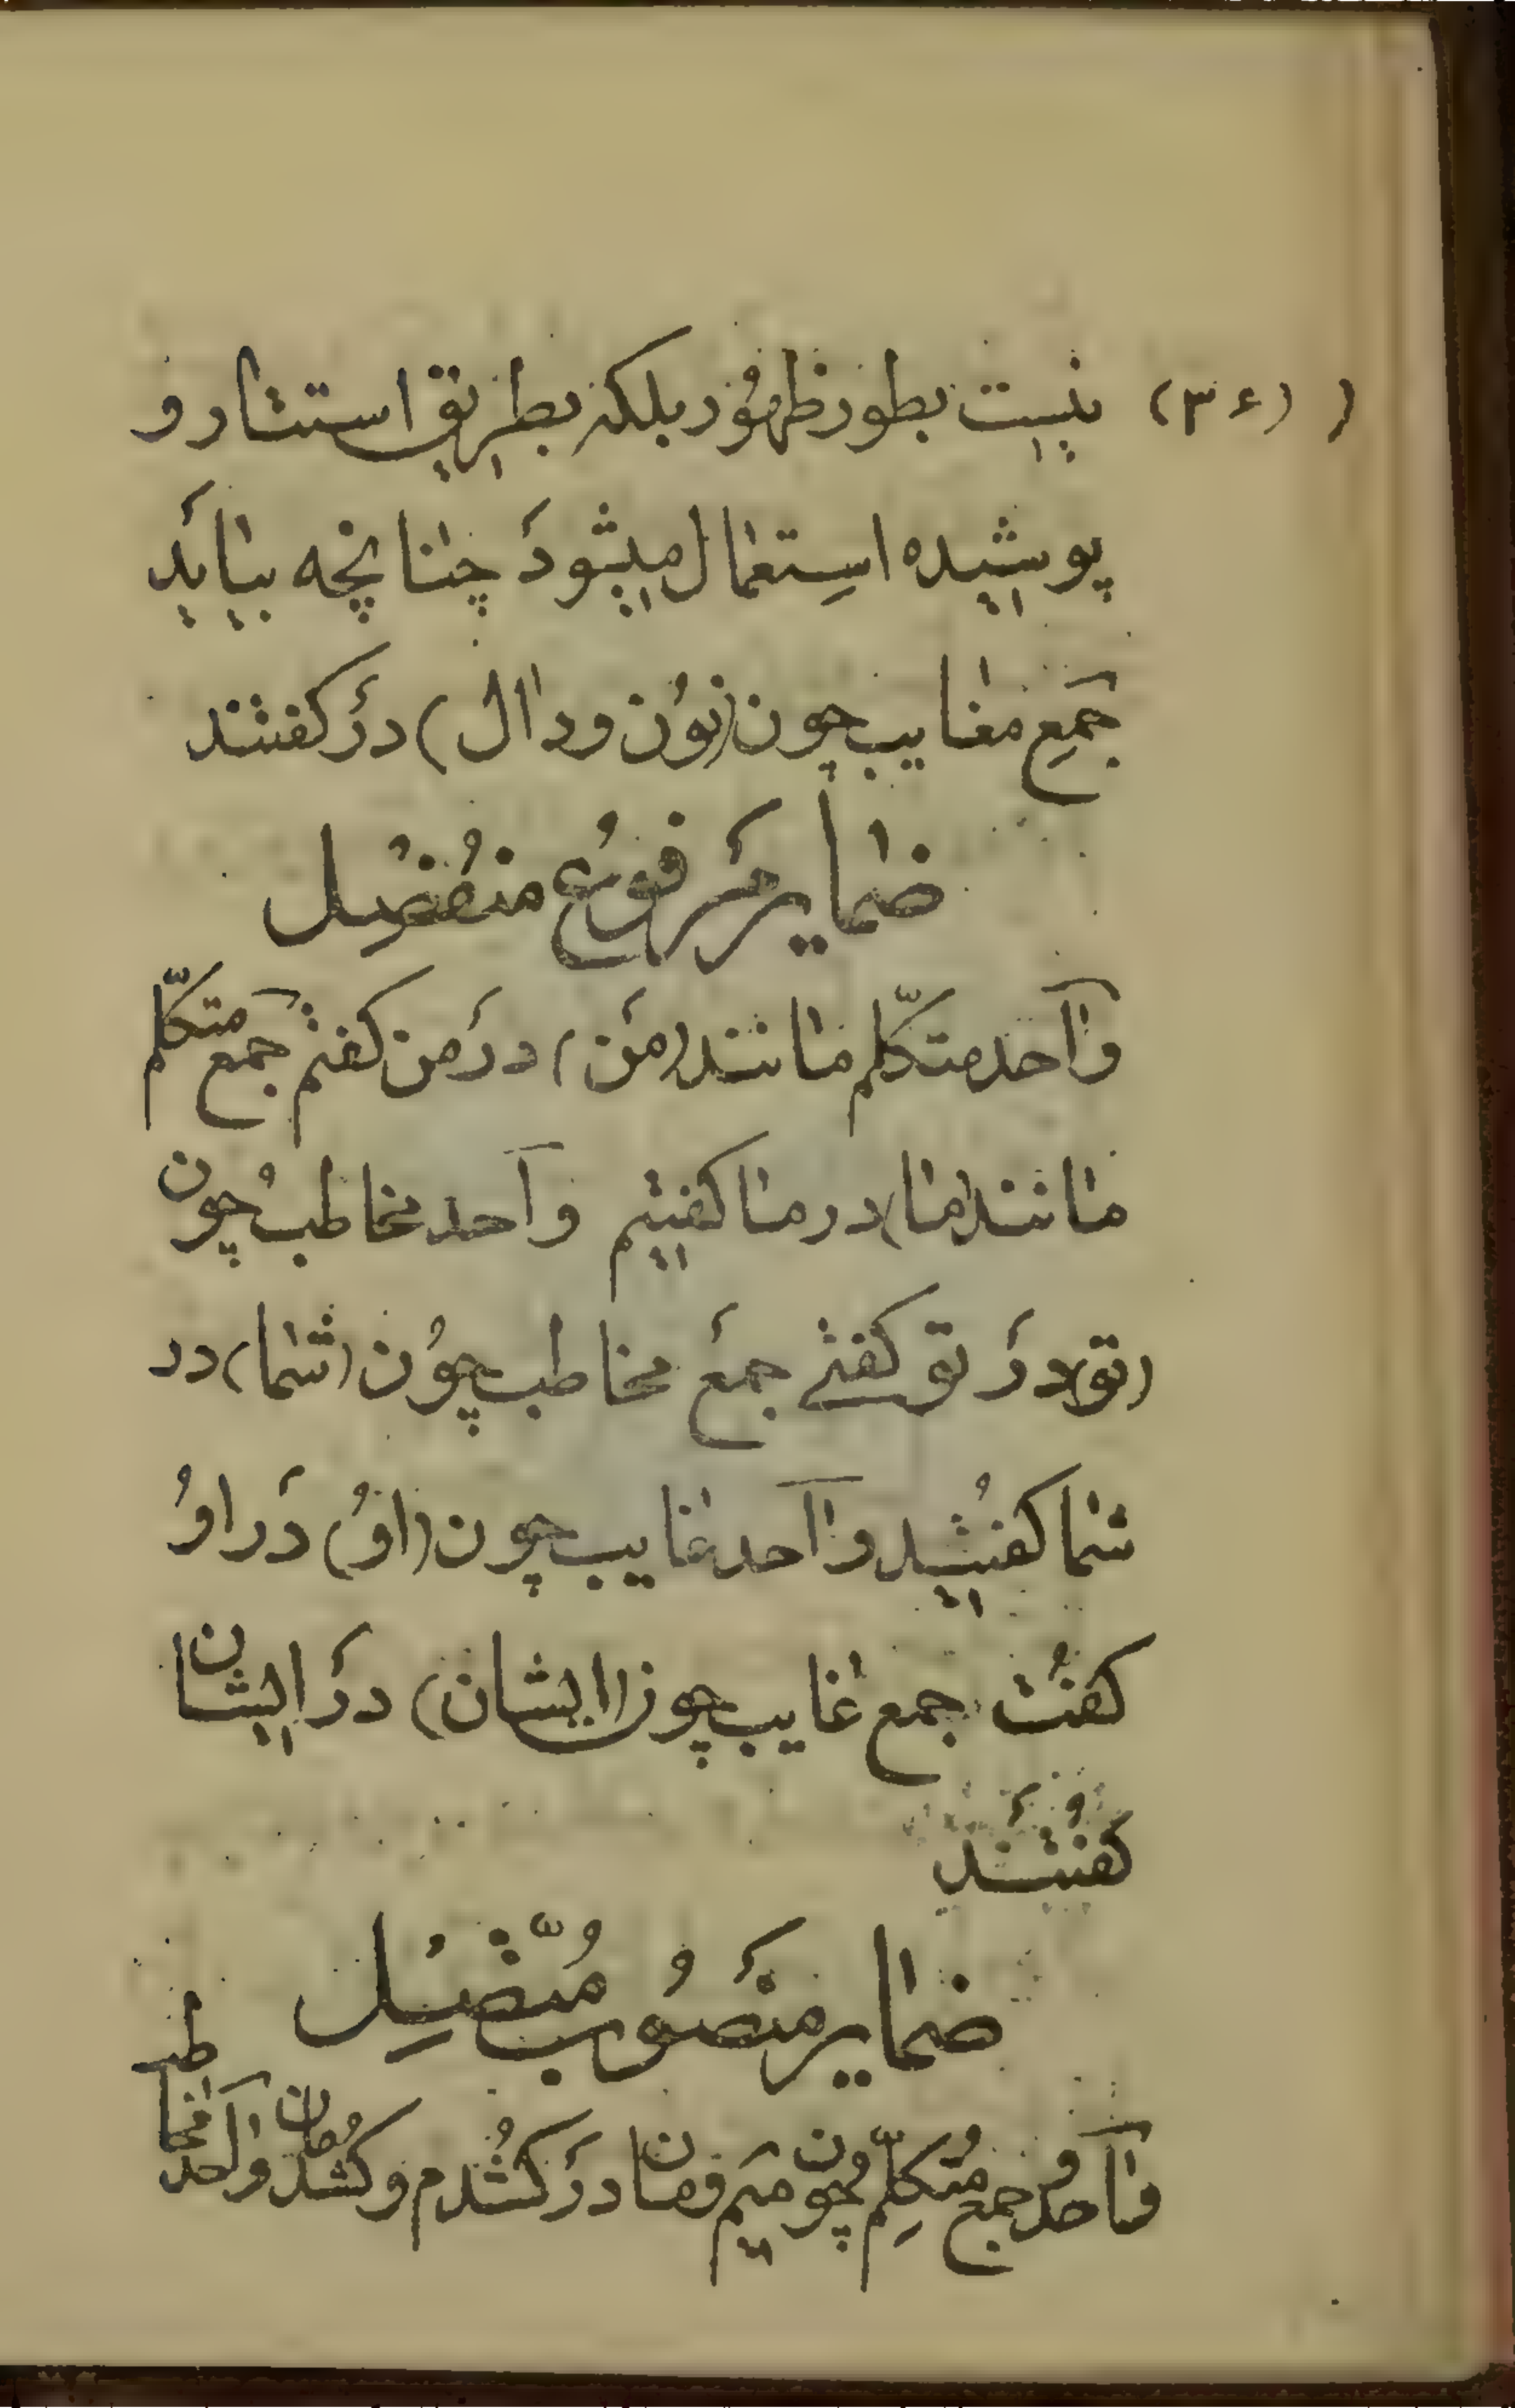 (٣۶) نیست بطور ظهوُر بلکه بطریق استتار و
پوشیده استِعمال میشودَ چنانچه بیایَد
جَمعِ مغایب چون (نوُن ودال) درَ گفتند
ضمایر مَرفوُع منفُصِل
وآحد متکلّم مانند (مَن) درَ من گفتم جمع متکلّم
مانند (ما) در ما گفتیم وآحد مخاطب چوُن
(تو) درَ تو گفتے جمعَ مخاطب چوُن (شما) در
شما گفتُید وآحد غایب چون (اوُ) دَر اوُ
گفتُ جمع غایب چون (ایشان) درَ ایشان
گفُتَند
ضمایر مَنصوُب مُتّصِل
وآحد و جمع مُتکلِّم چون میَم ومان درَ کشُدم و کشُدمان وآحد مخاطب